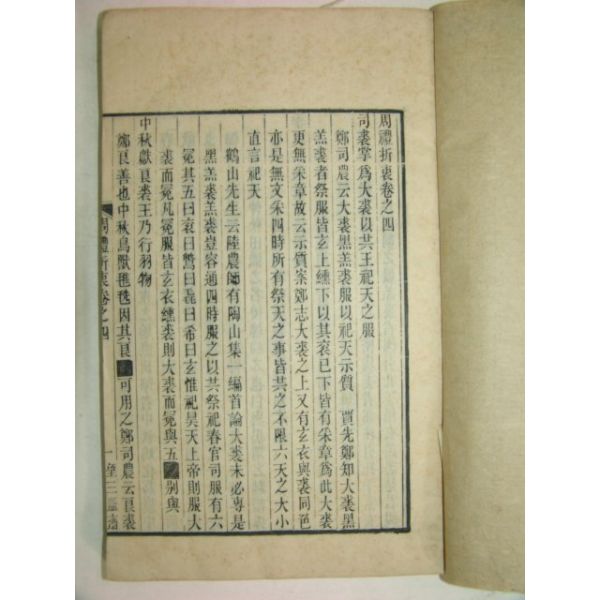 周禮折衷卷之四
司裘掌爲大裘以共王祀天之服
鄭司農云大裘黑羔裘服以祀天示質 賈先鄭知大裘黑
羔裘者祭服皆玄上纁下以其衮已下皆有采章爲此大裘
更無采章故云示質案鄭志大裘之上又有玄衣與裘同色
亦是無文采四時所有祭天之事皆共之不限六天之大小
直言祀天
鶴山先生云陸農師有陶山集一編首論大裘未必專是
黑羔裘羔裘豈容通四時服之以共祭祀春官司服有六
冕其五曰衮曰鷩曰毳曰希曰玄惟祀昊天上帝則服大
裘而冕凡冕服皆玄衣纁裳則大裘而冕與五 別與
中秋獻良裘王乃行羽物
鄭良善也中秋鳥獸毛毨因其良 可用之鄭司農云良裘
周禮折衷卷之四
一